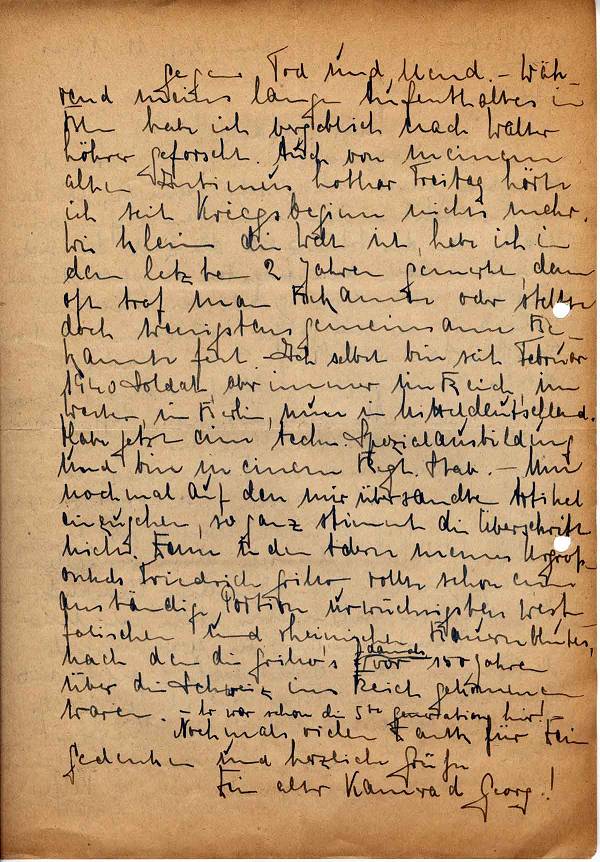 gegen Tod und Elend. – Wäh-
rend meines langen Aufenthaltes in
habe ich vergeblich nach Walter
Höhrer geforscht. Auch von meinem
alten Intimus Lothar Freitag hörte
ich seit Kriegsbeginn nichts mehr.
Wie klein die Welt ist, habe ich in
den letzten 2 Jahren gemerkt, denn
oft traf man Bekannte oder stellte
doch wenigstens gemeinsame Be-
kannte fest. Ich selbst bin seit Februar
1940 Soldat, aber immer im Reich, im
Westen, in Berlin, nun in Mitteldeutschland.
Habe jetzt eine techn. Spezialausbildung
und bin in einem Rgt. Stab. – Um
nochmal auf den mir übersandten Artikel
einzugehen, so ganz stimmt die Überschrift
nicht. Denn in den Adern meines Urgroß-
onkels Friedrich Grillo rollte schon eine
anständige Portion urwüchsigsten west-
fälischen und rheinischen Bauernblutes,
nachdem die Grillo's damals vor 150 Jahren
über die Schweiz ins Reich gekommen
waren. – Er war schon die 5te Generation hier! –
Nochmals vielen Dank für Dein
Gedenken und herzliche Grüße
Dein alter Kamerad Georg!